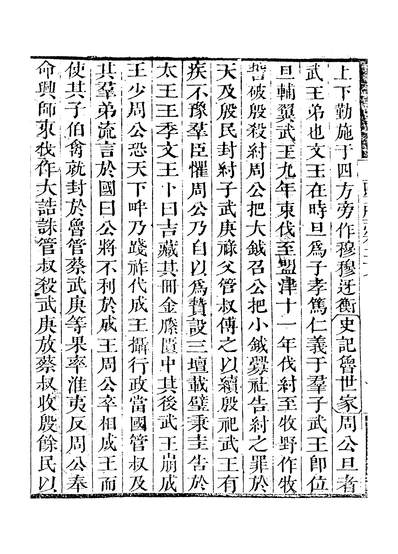 上下勤施于四方旁作穆穆迓衡史記魯世家周公旦者
武王弟也文王在時旦爲子孝篤仁義于羣子武王即位
旦輔翼武王九年東伐至盟津十一年伐紂至牧野作牧
誓破殷殺紂周公把大鉞召公把小鉞釁社告紂之罪於
天及殷民封紂子武庚祿父管叔傅之以續殷祀武王有
疾不豫羣臣懼周公乃自以爲贊設三壇載璧秉圭告於
太王王季文王卜曰吉藏其冊金縢匱中其後武王崩成
王少周公恐天下畔乃踐祚代成王攝行政當國管叔及
其羣弟流言於國曰公將不利於成王周公卒相成王而
使其子伯禽就封於魯管蔡武庚等果率淮夷反周公奉
命興師東伐作大誥誅管叔殺武庚放蔡叔收殷餘民以